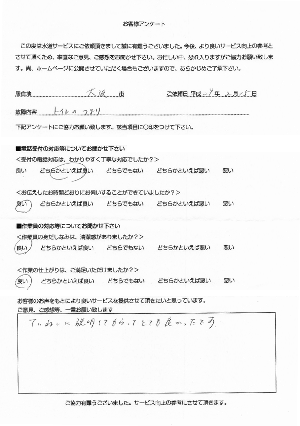 お客様アンケート
この度は水道サービスにご依頼頂きまして誠に有難うございました。今後、より良いサービス向上の参考と
させて頂くため、率直なご意見、ご感想をお聞かせ下さい。お忙しい中、恐れ入りますがご協力お願い致しま
す。尚、ホームページに公開させていただく場合もございますので、あらかじめご了承下さい。
居住地 大阪 市 ご依頼日 平成
故障内容 トイレの つまり
下記アンケートにご協力お願い致します。該当項目に〇印をつけて下さい。
■電話受付の対応等についてお聞かせ下さい
<受付の電話対応は、わかりやすく丁寧な対応でしたか？>
良い どちらかといえば良い どちらでもない どちらかといえば悪い 悪い
<お伝えしたお時間どおりにお伺いすることができていましたか？>
良い どちらかといえば良い どちらでもない どちらかといえば悪い 悪い
■作業員の対応等についてお聞かせ下さい
<作業員の身だしなみは、清潔感がありましたか？>
良い どちらかといえば良い どちらでもない どちらかといえば悪い 悪い
<作業の仕上がりは、ご満足いただけましたか？>
良い どちらかといえば良い どちらでもない どちらかといえば悪い 悪い
お客様のお声をもとにより良いサービスを提供させて頂きたいと思っています。
ご意見、ご感想等、一言お願い致します
ていねいに説明してもらってとても良かったです
ご協力有難うございました。サービス向上の参考にさせて頂きます。